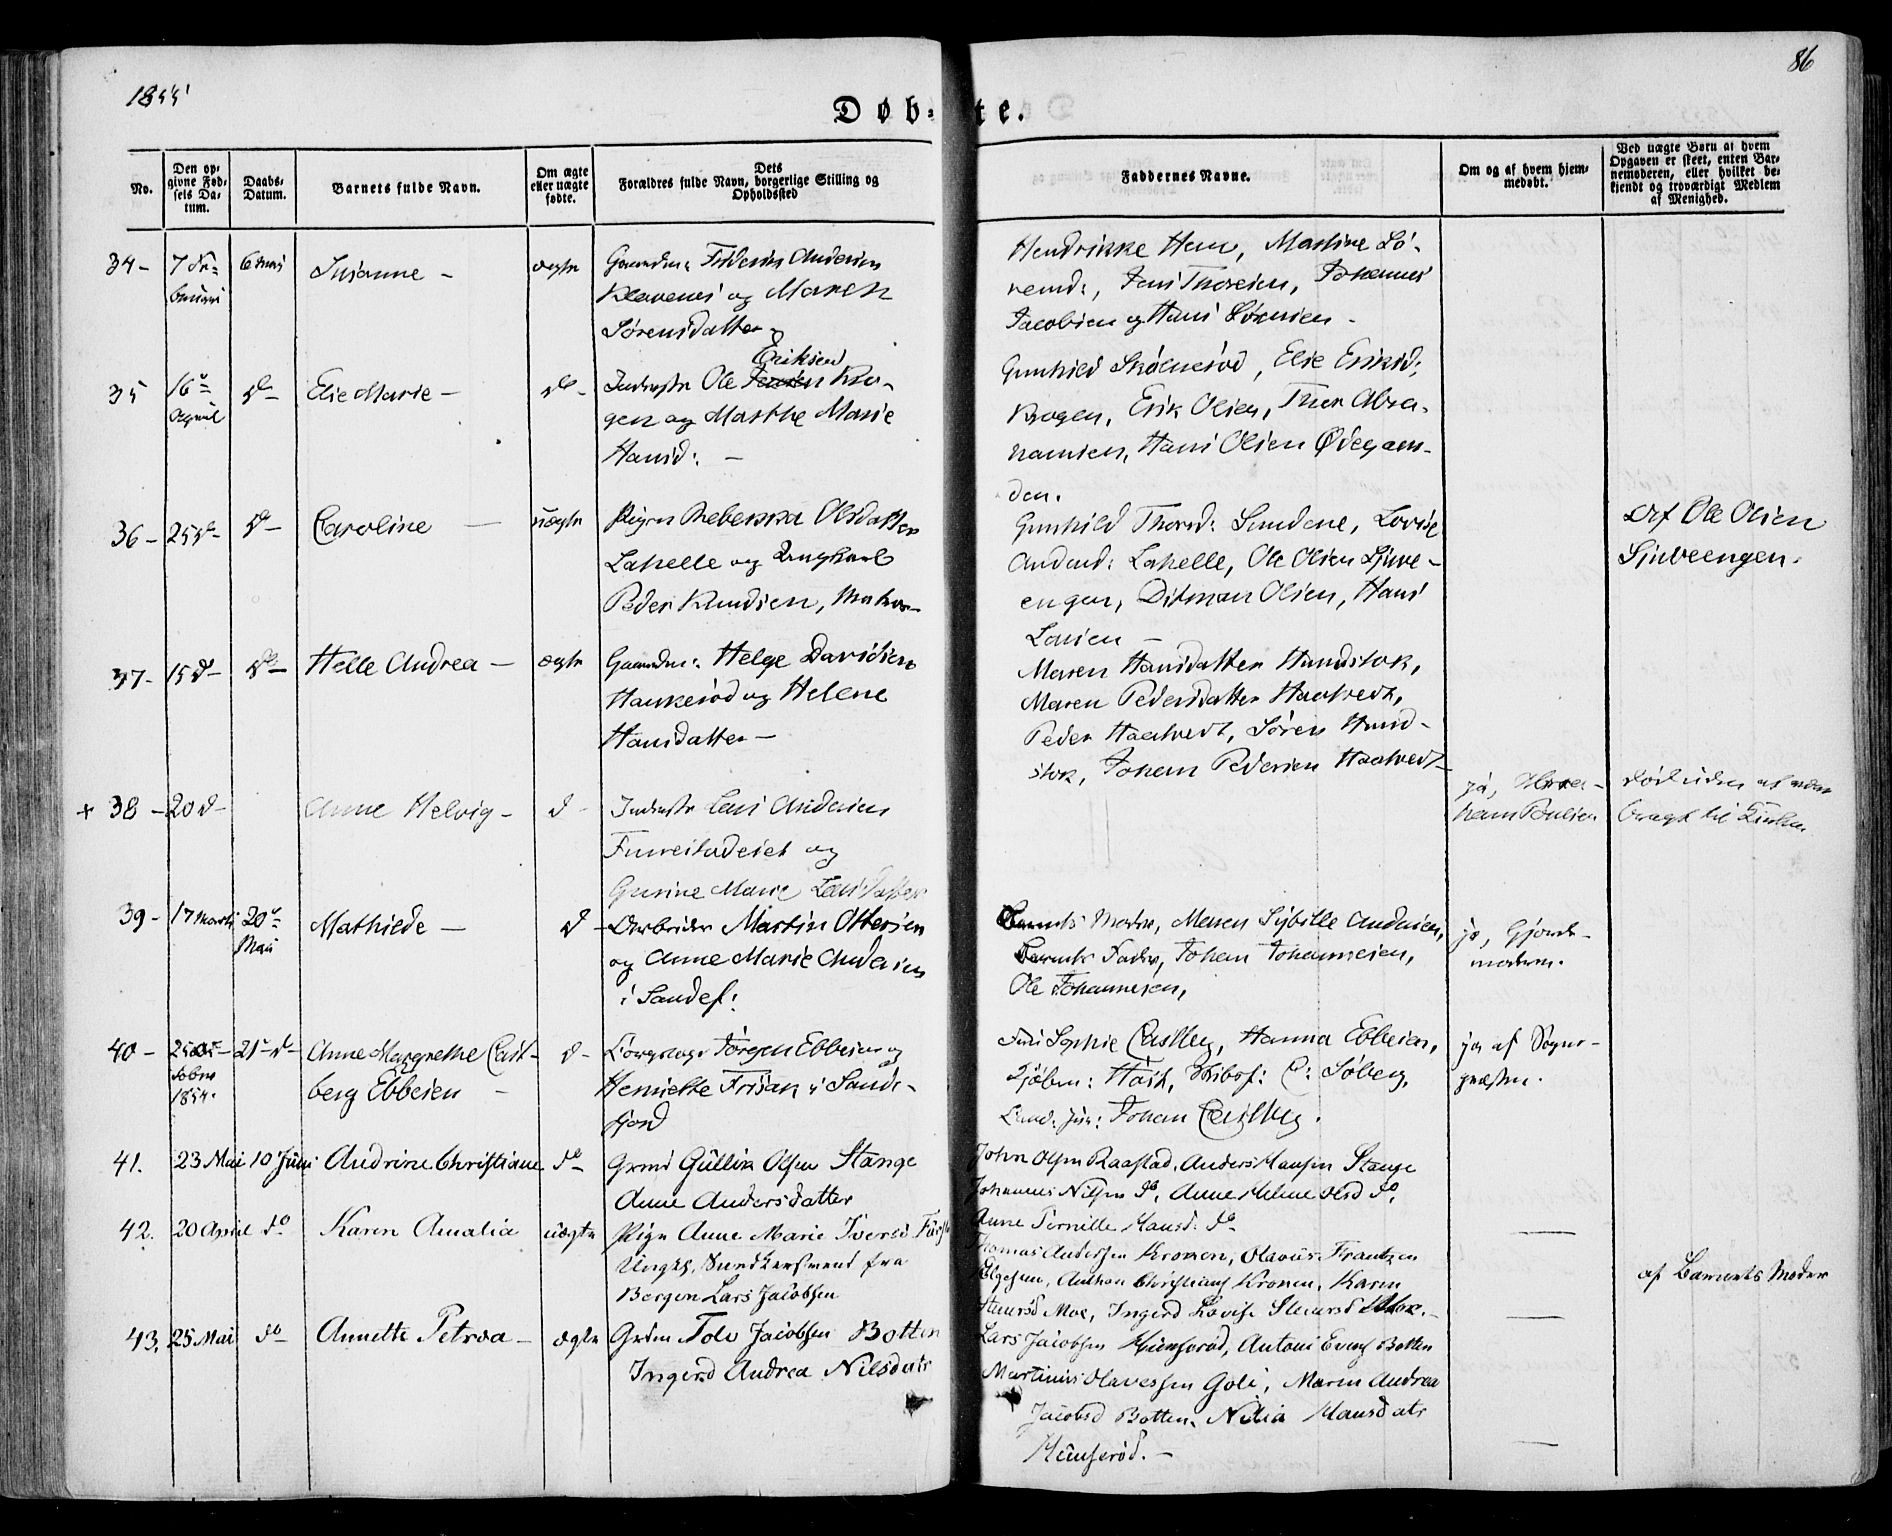 1855
86
Døb-te.
No.
Den op-
givne Fød-
sels Da-
tum.
Daabs-
Datum.
Barnets fulde Navn.
Om ægte
eller uægte
fødte.
Dets
Forældres fulde Navn, borgerlige Stilling og
Opholdssted
Faddernes Navne.
Om og af hvem hjem-
medøbt.
Ved uægte Børn af hvem
Opgaven er skeet, enten Bar-
nemoderen, eller hvilket be-
kjendt og troværdigt Medlem
af Menighed.
34-
7 Fe-
bruari
6 Mai
Susanne -
ægte
Gaardm: Andersen
Klavenes og Maren
Sørensdatter
Hendrikke Hem, Martine Sø-
rensd:, Jens Thoresen, Johannes
Jacobsen og Hans Sørensen -
35
16
April
do-
Elie Marie -
do-
Eriksen
Inderste Ole Kro-
gen og Marthe Marie
Hansd: -
Gunhild , Elie Eriksd:
Krogen, Erik Olsen, Thor Abra-
hamsen, Hans Olsen Ødegaar-
den.
36-
25 do-
do-
Caroline -
uægte
Pigen Rebekka Olsdatter
Lahelle og Ungkarl
Peder Knudsen,
Gunhild Thorsd: Sundene, Lovise
Andersd: Lahelle, Ole Olsen Sjuve-
engen, Ditman Olsen, Hans
Larsen -
Af Ole Olsen
Sjuveengen.
37-
15 d-
do-
Helle Andrea -
ægte
Gaardm: Helge Davidsen
Haukerød og Helene
Hansdatter -
Maren Hansdatter Hundstok,
Maren Pedersdatter Haatvedt,
Peder Haatvedt, Søren Hund-
stok, Johan Pedersen Haatvedt
+ 38-
20 d-
Anne Helvig -
d-
Inderste Lars Andersen
og
Gurine Marie Larsdatter
ja, Abra-
ham Poulsen
død uden at være
bragt til Kirken
39-
17 Marts
20
Mai
Mathilde -
d-
Arbeider Martin Ottersen
og Anne Marie Andersen
i Sandef:
Barnets Moder, Maren Sybille Andersen,
Barnets Fader, Johan Johannesen,
Ole Johannesen,
ja, Gjorde-
moderen.
40-
25 Oc-
tober
1854.
21 d-
Anne Margrethe Cast-
berg Ebbesen -
d-
Jørgen Ebbesen og
Henriette Frisak i Sande-
fjord
Sophie Castberg, Hanna Ebbesen,
Kjøbm: Høst, Skibsf: C: Søberg,
Cand: Jur: Johan Castberg.
ja af Sogne-
præsten.
41.
23 Mai
10 Juni
Andrine Christiane
do-
Grmd Gullik Olsen Stange
Anne Andersdatter
John Olsen Raastad, Anders Hansen Stange
Johannes Nilsen do, Anne Helene Olsd do,
Anne Pernille Hansd: do-
42.
20 April
do
Karen Amalia
uægte
Pige Anne Marie Iversd
Ungk, Bundkersmand fra
Bergen Lars Jacobsen
Thomas Andersen Kronen, Olavus Frantzen
Helgesen, Anthon Christians Kronen, Karen
Hansd Moe, Ingerd Lovise Moe. -
af Barnets Moder
43,
25 Mai
do
Annette Petrea -
ægte
Grdm Tolv Jacobsen Botten
Ingerd Andrea Nilsdatr
Lars Jacobsen Hunserød, Anton Evens Botten
Martinius Olavessen Goli, Maren Andrea
Jacobsd Botten, Nilia Hansdatr
Hunserød. -